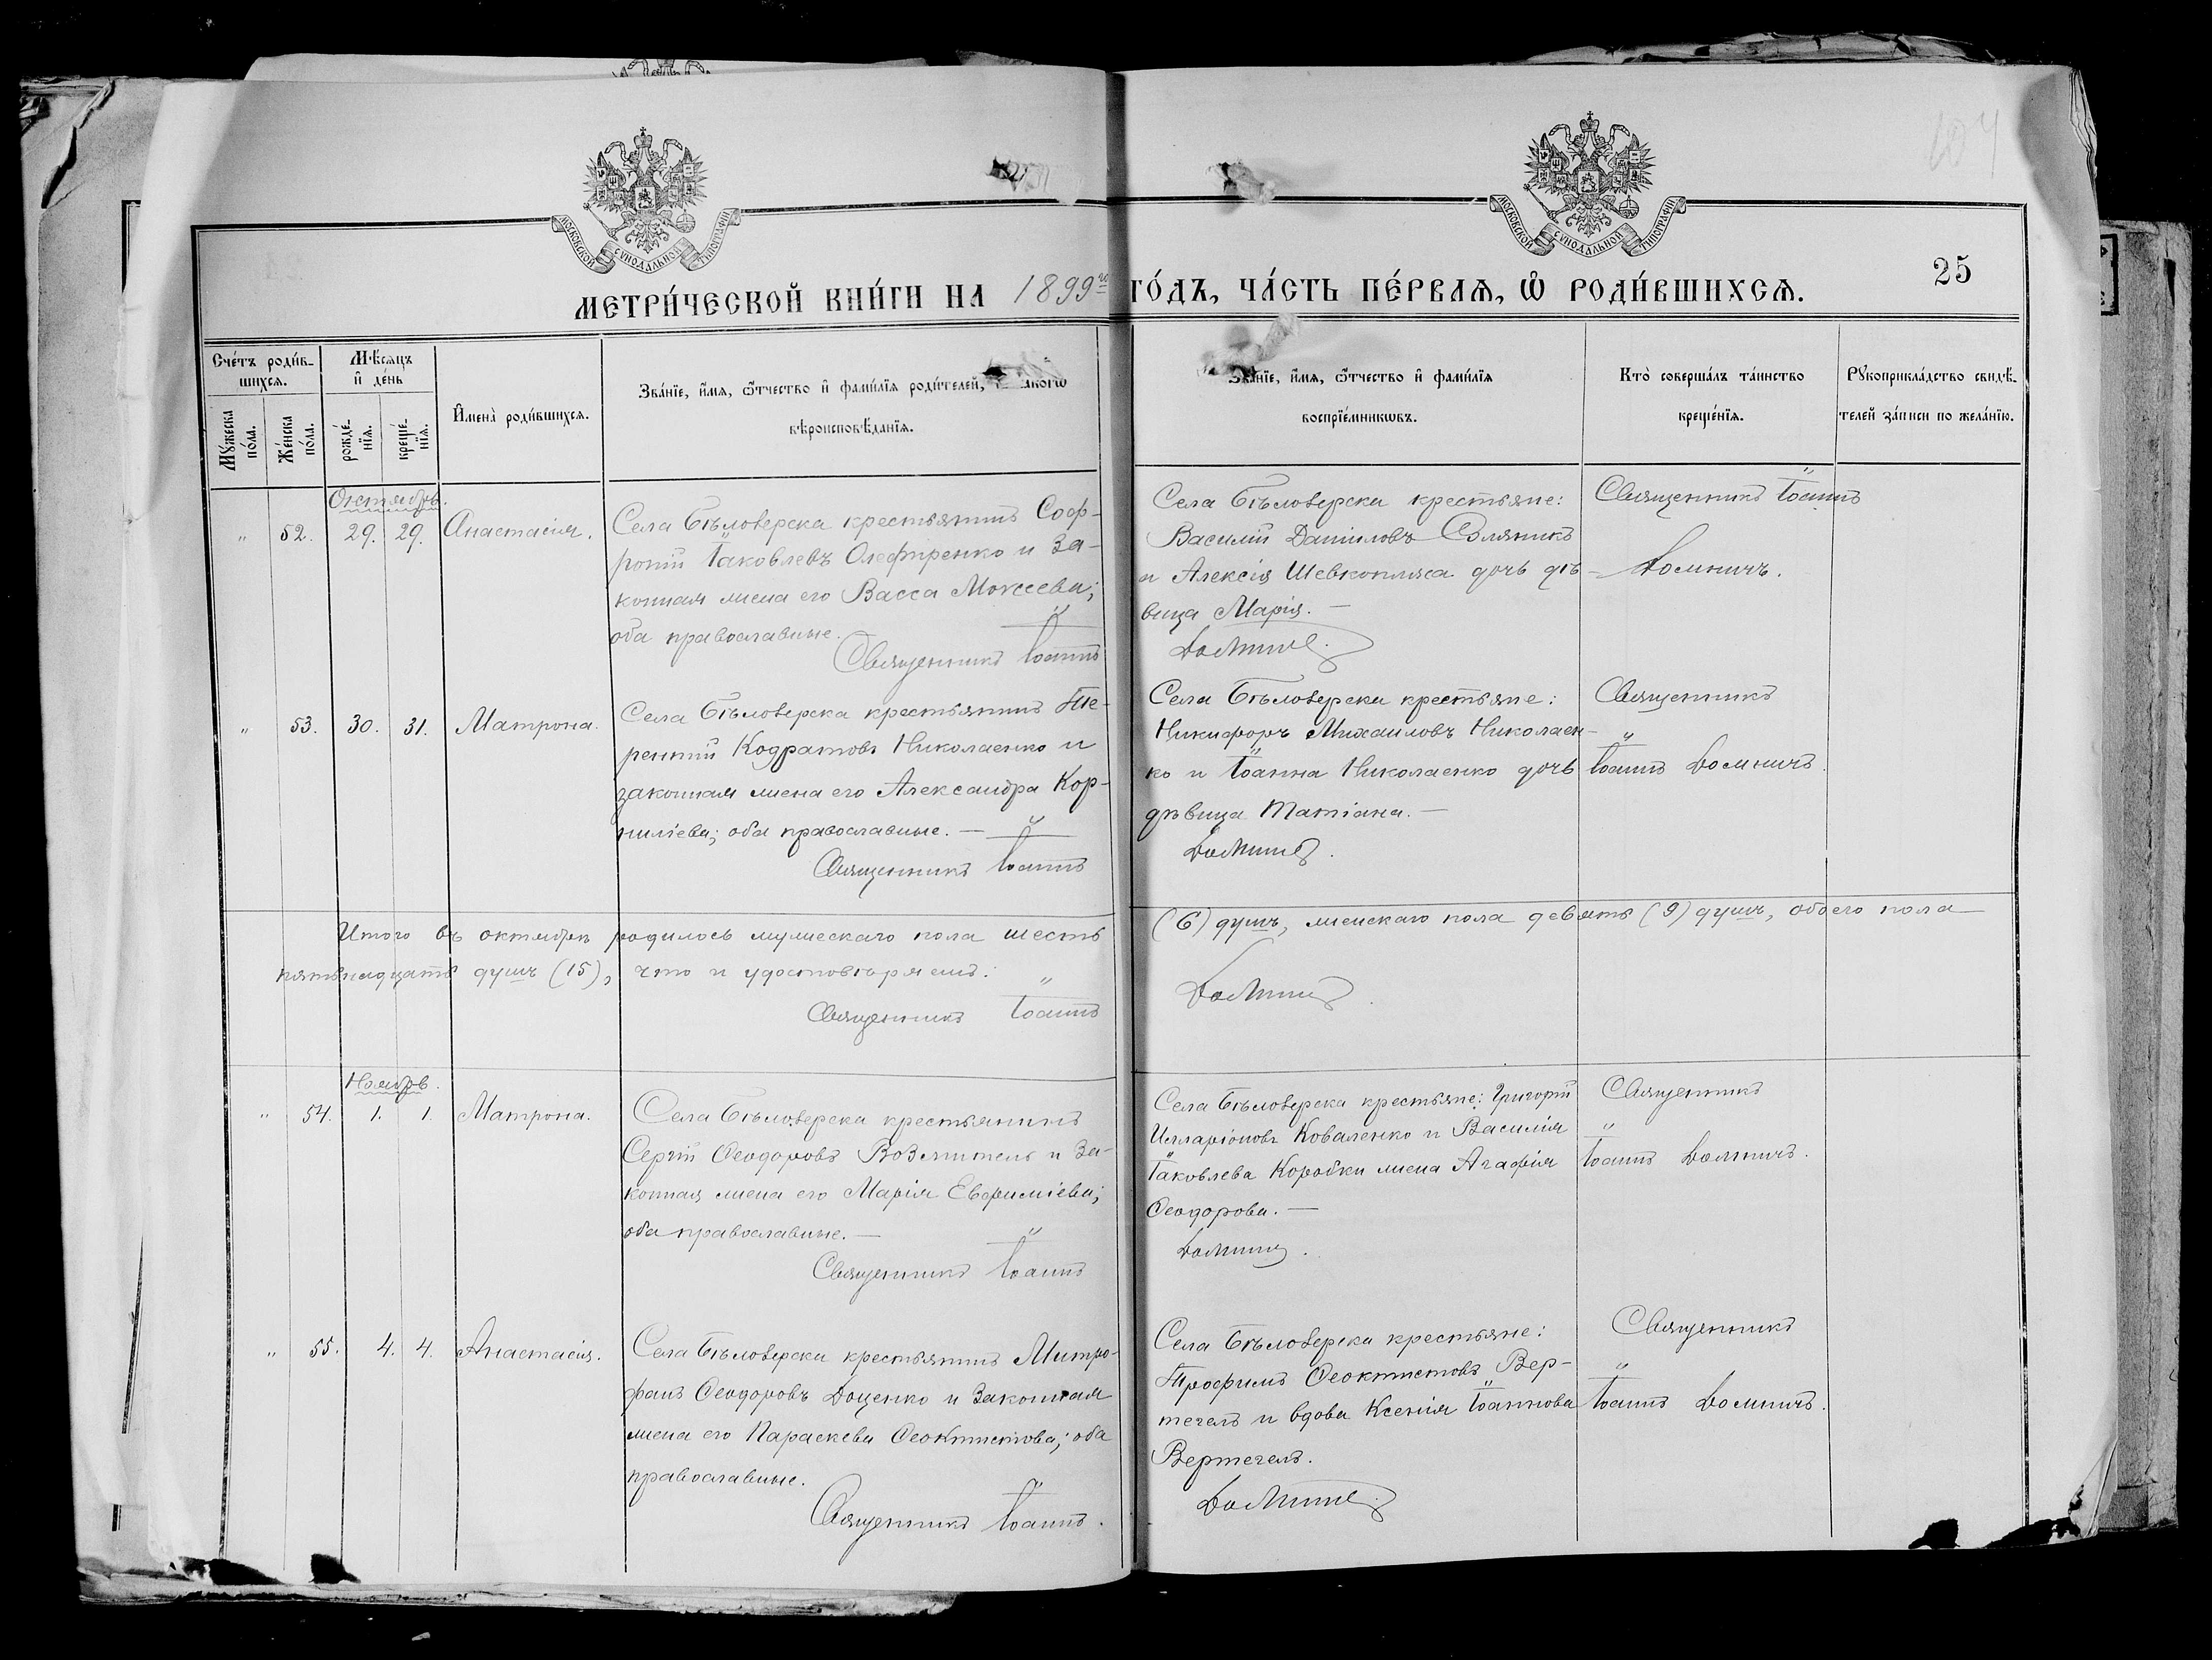 МОСКОВСКОЙ СѴНОДАЛЬНОЙ ТИПОГРАФІИ
МОСКОВСКОЙ СѴНОДАЛЬНОЙ ТИПОГРАФІИ
104
25
МЕТРИ́ЧЕСКОЙ КНИ́ГИ НА 1899го ГО́ДЪ, ЧА́СТЬ ПЕ́РВАѦ, Ѡ҆ РОДИ́ВШИХСѦ.
Сче́тъ роди́в-
шихсѧ.
Мꙋ́жеска
по́ла.
Же́нска
по́ла.
Мѣ́сѧцъ
и҆ де́нь
рожде́-
нїѧ.
креще́-
нїѧ.
И҆мена̀ роди́вшихсѧ.
Зва́нїе, и҆́мѧ, ѻ҆́тчество и҆ фами́лїѧ роди́телей,
вѣроисповѣ́данїѧ.
Зва́нїе, и҆́мѧ, ѻ҆́тчество и҆ фами́лїѧ
воспрїе́мникѡвъ.
Кто̀ соверша́лъ та́инство
креще́нїѧ.
Рꙋкоприкла́дство свидѣ́-
телей за́писи по жела́нїю.
Октябрь.
" 52. 29. 29. Анастасія.
Села Бѣловерска крестьянинъ Соф-
роній Іаковлевъ Олефиренко и за-
конная жена его Васса Мокеева;
оба православные.
Священникъ Іоаннъ
Села Бѣловерска крестьяне:
Василій Даніиловъ Соляникъ
и Алексія Шевкопляса дочь дѣ-
вица Марія. —
Доминич
Священникъ Іоаннъ
Доминичъ.
" 53. 30. 31. Матрона.
Села Бѣловерска крестьянинъ Те-
рентій Кодратовъ Николаенко и
законная жена его Александра Кор-
ниліева; оба православные. —
Священникъ Іоаннъ
Села Бѣловерска крестьяне:
Никифоръ Михаиловъ Николаен-
ко и Іоанна Николаенко дочь
дѣвица Татіана. —
Доминич.
Священникъ
Іоаннъ Доминичъ.
Итого въ октябрѣ родилось мужескаго пола шесть (6) душъ, женскаго пола девять (9) душъ, обоего пола
пятьнадцать душъ (15), что и удостовѣряемъ:
Священникъ Іоаннъ Доминич.
Ноябрь.
" 54. 1. 1. Матрона.
Села Бѣловерска крестьянинъ
Сергій Ѳеодоровъ Возмитель и за-
конная жена его Марія Евфиміева;
оба православные. —
Священникъ Іоаннъ
Села Бѣловерска крестьяне: Григорій
Илларіоновъ Коваленко и Василія
Іаковлева Коробки жена Агафія
Ѳеодорова. —
Доминич.
Священникъ
Іоаннъ Доминичъ.
" 55. 4. 4. Анастасія.
Села Бѣловерска крестьянинъ Митро-
фанъ Ѳеодоровъ Доценко и законная
жена его Параскева Ѳеоктистова; оба
православные.
Священникъ Іоаннъ.
Села Бѣловерска крестьяне:
Трофимъ Ѳеоктистовъ Вер-
тегелъ и вдова Ксенія Іоаннова
Вертегелъ.
Доминич.
Священникъ
Іоаннъ Доминичъ.